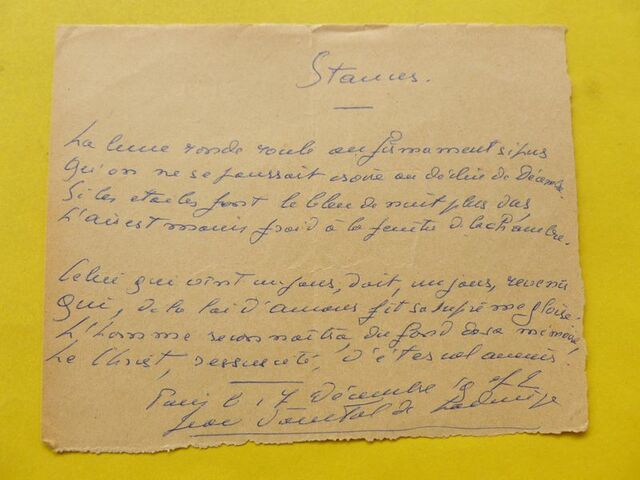 Stances.
La lune ronde roule au firmament si pur
Qu'on ne se pourrait croire au déclin de Décembre.
Si les étoiles font le bleu de nuit plus
L'air est moins froid à la fenêtre de la chambre.
Celui qui vint un jour, doit, un jour, revenir
Qui, de la loi d'amour fit sa suprême gloire.
L'homme reconnaîtra, du fond de sa mémoire,
Le Christ, ressuscité, d'éternel avenir.
Paris 17 Décembre
Jean de